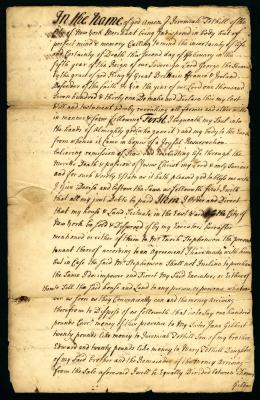 In the Name of god amen I Jeremiah Tothill of the
City of New York Merchant being Indisposed in body but of
perfect mind & memory Calling to mind the incertainty of life
& Certainty of Death this Second day of February in the
fifth year of the Reign of our Soveraign Lord George the Second
by the grace of god King of Great Brittain France & Ireland
Defender of the faith &c in the year of our Lord one thousand
seven hundred & thirty one Do make and Declare this my last
Will and testament hereby revoking all former & other wills
in manner & form following First I bequeath my Soul into
the hands of Almighty god (who gave it) and my body to the Earth
from whence it came in hopes of a Joyfull Resurrection
believing remission of Sins and Everlasting life through the
merits Death & passion of Jesus Christ my Lord & only Saviour
and for such worldly Estate as it hath pleased god to bless me with
I Give Devise and bestow the Same as followeth first I will
that all my just Debts be paid Item I Order and Direct
that my house & Land Scituate in the East Ward of the City of
New York be Sold & Disposed of by my Executors hereafter
mentioned or either of them to Mr Parch Stephenson the present
tenant thereof according to an Agreement I have made with him
but in Case the said Mr Stephenson Shall not Incline to purchase
the Same I do impower and Direct my Said Executors or Either of
them to Sell the said house and Land to any person or persons whatsoever
as soon as they Conveniently can and the money arriseing
therefrom to Dispose of as followeth that is to Say one hundred
pounds Curr: money of this province to my Sister Jane Gilbert
twenty pounds like money to Jeremiah Tothill Son of my brother
Edward and twenty pounds like money to Mary Tothill Daughter
of my Said brother and the Remainder of the money Arriseing
from the Sale aforesaid I will to be equally Divided between